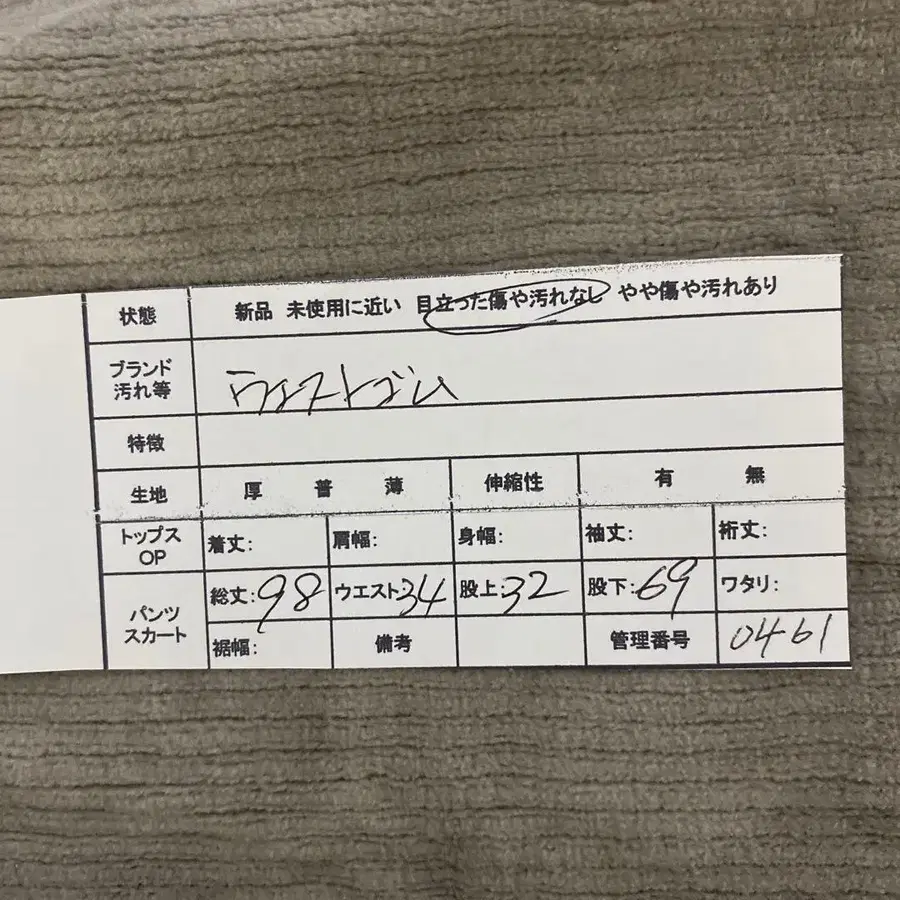 状態 新品 未使用に近い 目立った傷や汚れなし やや傷や汚れあり
ブランド
汚れ等
ウエストゴム
特徴
生地 厚 普 薄 伸縮性 有 無
トップス
OP
着丈: 肩幅: 身幅: 袖丈: 裄丈:
パンツ
スカート
総丈:98 ウエスト34 股上:32 股下:69 ワタリ:
裾幅: 備考 管理番号 0461